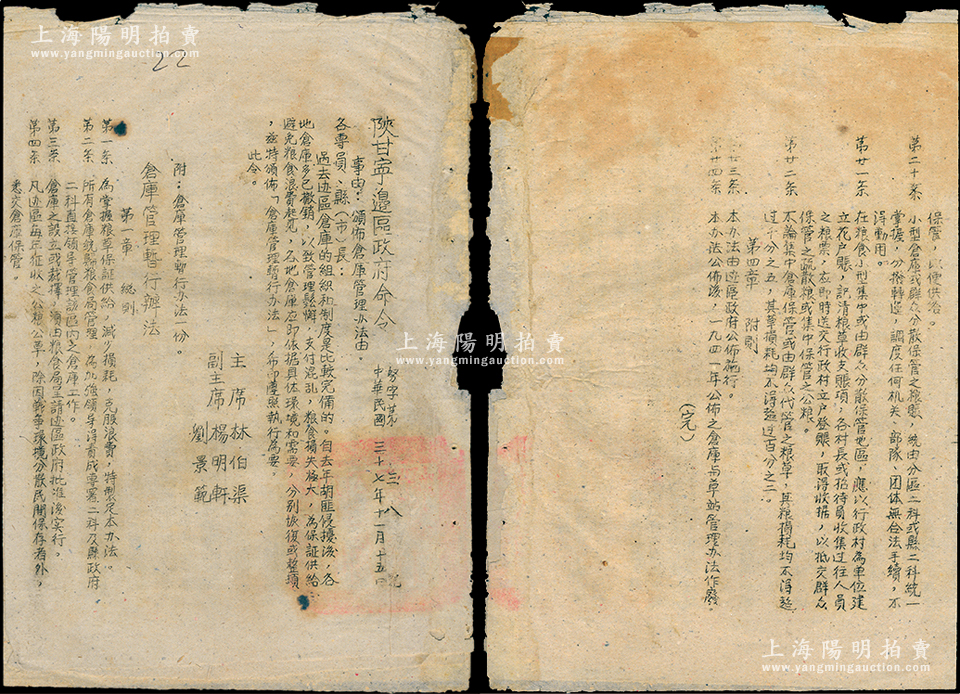 上海陽明拍賣
www.yangmingauction.com
22
陝甘寧邊區政府命令
努字第 三八 號
中華民國三十七年十一月十五日
事由：頒佈倉庫管理办法由。
各專員、縣（市）長：
過去边區倉庫的組織和制度是比較完備的。自去年胡匪侵擾後，各
地倉庫多已撤銷，以致管理鬆懈，支付混乱，粮食損失極大，為保証供給
避免粮食浪費起見，各地倉庫应即依据具体环境和需要，分别恢復或整頓
，兹特頒佈「倉庫管理暫行办法」，希即遵照執行為要。
此令。
主席 林伯渠
副主席 楊明軒
劉景範
附：倉庫管理暫行办法一份。
倉庫管理暫行辦法
第一章 總則
第一条 為掌握粮草保証供給，减少損耗，克服浪費，特製定本办法。
第二条 所有倉庫統歸粮食局管理，為加強領导得責成專署二科及縣政府
二科直接領导管理該區內之倉庫工作。
第三条 倉庫之設立或裁撤，須由粮食局呈請边區政府批准後实行。
第四条 凡边區每年征收之公粮公草，除因戰爭环境分散民間保存者外，
悉交倉庫保管。
保管，以便供給。
第二十条 小型倉庫或群众分散保管之粮賬，統由分區二科或縣二科統一
掌握，分撥轉运，調度任何机关、部隊、团体無合法手續，不
得動用。
第廿一条 在粮食小型集中或由群众分散保管地區，應以行政村為單位建
立花户賬，記清粮草收支賬項，各村長或招待員收集过往人員
之粮票，应即時送交行政村立户登賬，取得收据，以抵交群众
保管之疏散粮或集中保管之公粮。
第廿二条 不論集中倉庫保管或由群众代管之粮草，其粮損耗均不得超
过千分之五，其草損耗均不得超过百分之二。
第四章 附則
廿三条 本办法由边區政府公佈施行。
廿四条 本办法公佈後，一九四一年公佈之倉庫与草站管理办法作廢。
（完）
上海陽明拍賣
www.yangmingauction.com
上海陽明拍賣
www.yangmingauction.com